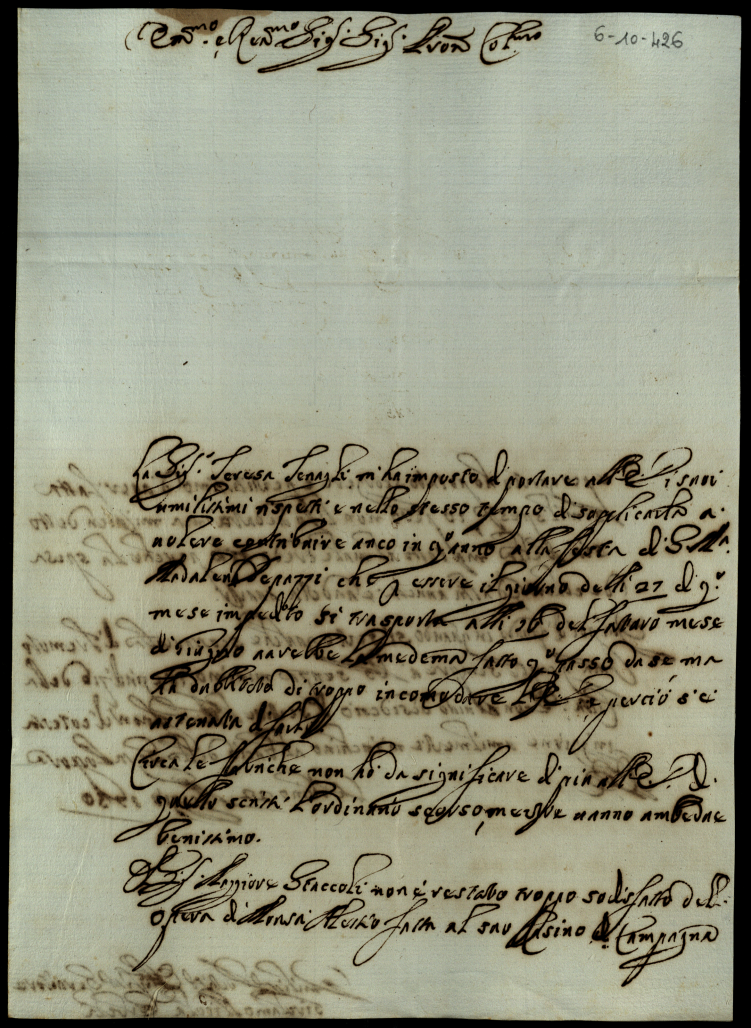 Em.mo e Rev.mo Sig.r Sig.r Pron Col.mo
6-10-426
La Sig.ra Teresa m'ha imposto di portare all'E. V. i suoi
umilissimi rispetti e nello stesso tempo di supplicarla a
volere contribuire anco in q.o anno alla festa di S. M.a
Madalena Depazzi che p essere il giorno delli 27 di q.o
mese impedito si trasporta alli 16 del futturo mese
di giugno avrebbe la medema fatto q.o passo da se ma
ha dubitato di troppo incomodare E. perciò s'è
astenuta di farlo
Circa le non hò da significare di più all'E. V. di
quello scrissi l'ordinario scorso, mentre vanno ambedue
benissimo.
Il Sig.r Maggiore Staccoli non è restato troppo sodisfatto dell'
Opera di Monsù fatta al suo Casino di Campagna